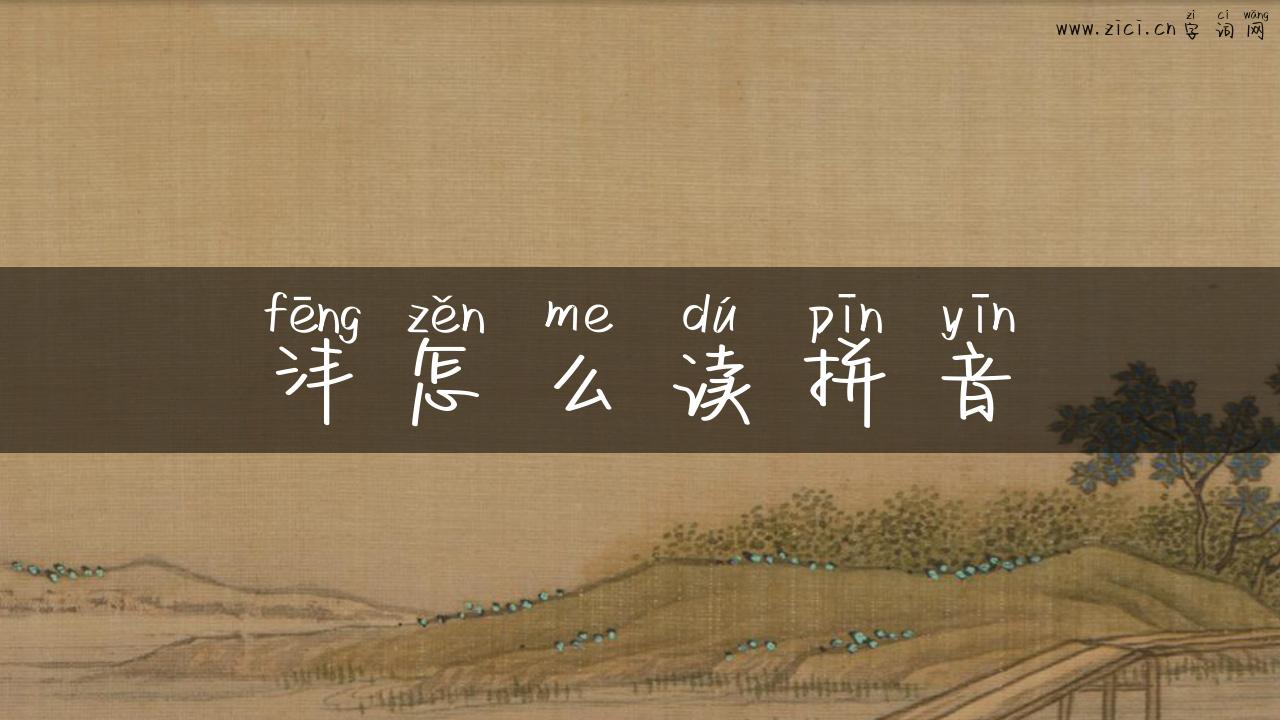 zì cí wǎng
www.zici.cn字词网
fēng zěn me dú pīn yīn
沣怎么读拼音